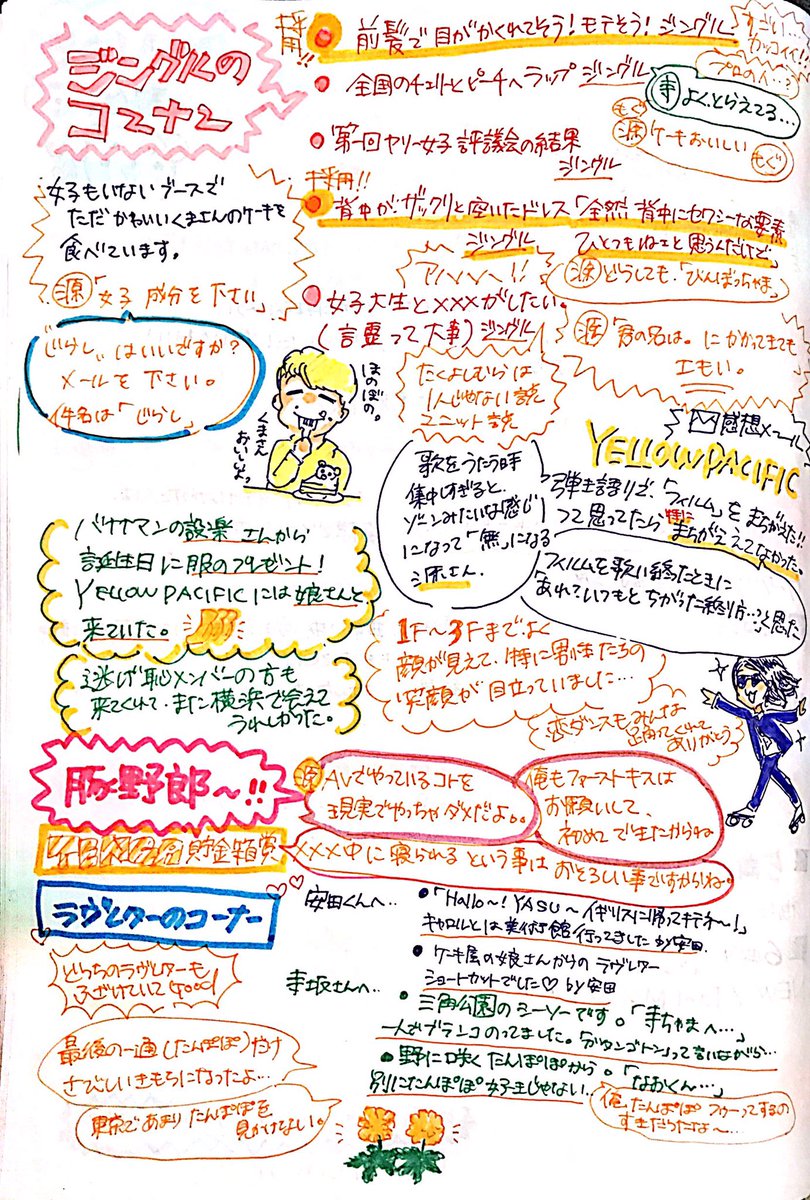 ジングルの
コーナー
採用!!
前髪で目がかくれてそう!モテそう!ジングル
すごい…
カッコイイ!!
プロの人…?
全国のチェリトとピーチへラップ ジングル
寺 よくとらえてる…
もぐ
源 ケーキおいしい
もぐ
第一回ヤリー女子評議会の結果
ジングル
採用!!
背中がザックリと空いたドレス「全然背中にセクシーな要素
ひとつもねェと思うんだけど」
ジングル
アハハハ!!
源 どうしても、「びんぼっちゃま」
女子大生と×××がしたい。
(言霊って大事)ジングル
源 「君の名は。にかかってきても
エモい。
女子もいないブースで
ただかわいいくまさんのケーキを
食べています。
源「女子成分を下さい」
「じらし」はいいですか?
メールを下さい。
件名は「じらし」
ほのぼの。
くまさん
おいしいよっ
たくよしむらは
1人じゃない説
ユニット説
感想メール
YELLOW PACIFIC
弾き語りで、「フィルム」をまちがえた!!
って思ってたら特にまちがえてなかった。
歌をうたう時
集中しすぎると、
ゾーンみたいな感じ
になって「無」になる
源さん。
フィルムを歌い終えたときに
「あれ?いつもとちがった終り方…?」と思った
バナナマンの設楽さんから
誕生日に服のプレゼント!
YELLOW PACIFICには娘さんと
来ていた。
逃げ恥メンバーの方も
来てくれて、また横浜で会えて
うれしかった。
1F〜3Fまでよく
顔が見えて、特に男性たちの
笑顔が目立っていました…
恋ダンスもみんな
踊ってくれて
ありがとう
豚野郎〜!!
源 AVでやっているコトを
現実でやっちゃダメだよ。。
俺もファーストキスは
お願いして、
初めてで生たからね
貯金箱賞
×××中に寝られるという事はおそろしい事ですからね。
ラヴレターのコーナー
安田くんへ…
「Hallo〜!YASU〜イギリスに帰ってキテネ〜!
キャロルとは美術館行ってました by安田
ケーキ屋の娘さんからのラヴレター
ショートカットでした♡ by安田
どっちのラヴレターも
ふざけていてGood
寺坂さんへ…
三角公園のシーソーです。「寺ちゃまへ…」
一人でブランコのってました。「ガタンゴトン」って言いながら…
野に咲くたんぽぽから。「なおくん…」
別にたんぽぽ女子じゃない…
最後の一通(たんぽぽ)だけ
さびしいきもちになったよ…
東京であまりたんぽぽを
見かけてない。
俺、たんぽぽフゥーってするの
すきだったな〜…